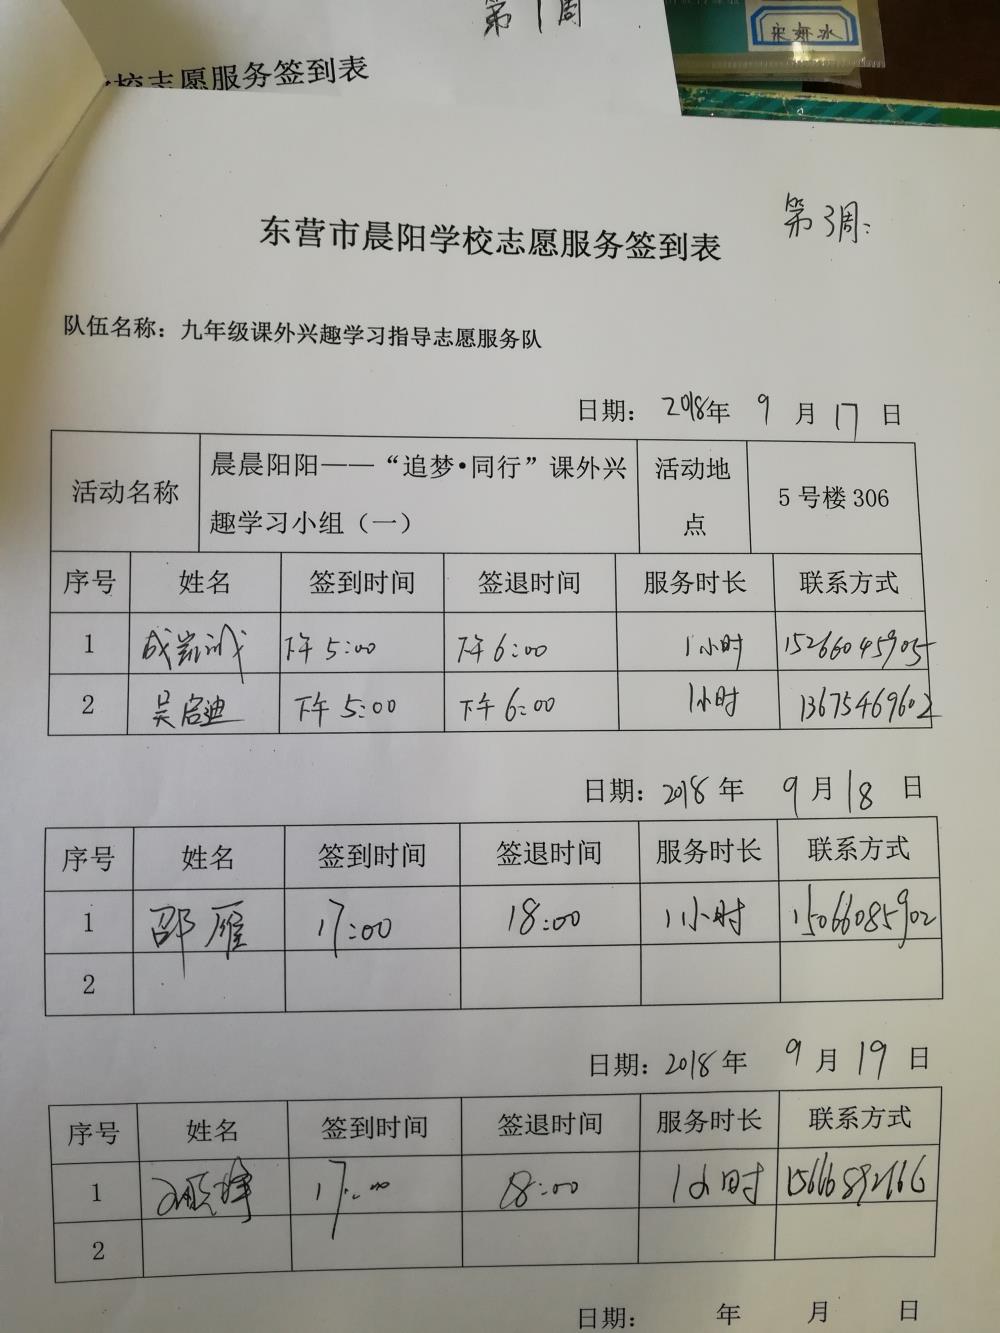 第1周
校志愿服务签到表
东营市晨阳学校志愿服务签到表
第3周:
队伍名称：九年级课外兴趣学习指导志愿服务队
日期： 2018年 9 月 17 日
活动名称 晨晨阳阳——“追梦•同行”课外兴趣学习小组（一） 活动地点 5 号楼 306
序号 姓名 签到时间 签退时间 服务时长 联系方式
1 成凯诚 下午 5:00 下午 6:00 1小时 15266045905
2 吴启迪 下午 5:00 下午 6:00 1小时 13675469602
日期：2018 年 9 月 18 日
序号 姓名 签到时间 签退时间 服务时长 联系方式
1 邵雁 17:00 18:00 1小时 15066085902
2
日期：2018 年 9 月 19 日
序号 姓名 签到时间 签退时间 服务时长 联系方式
1 17:00 18:00 1小时 15666892666
2
日期： 年 月 日